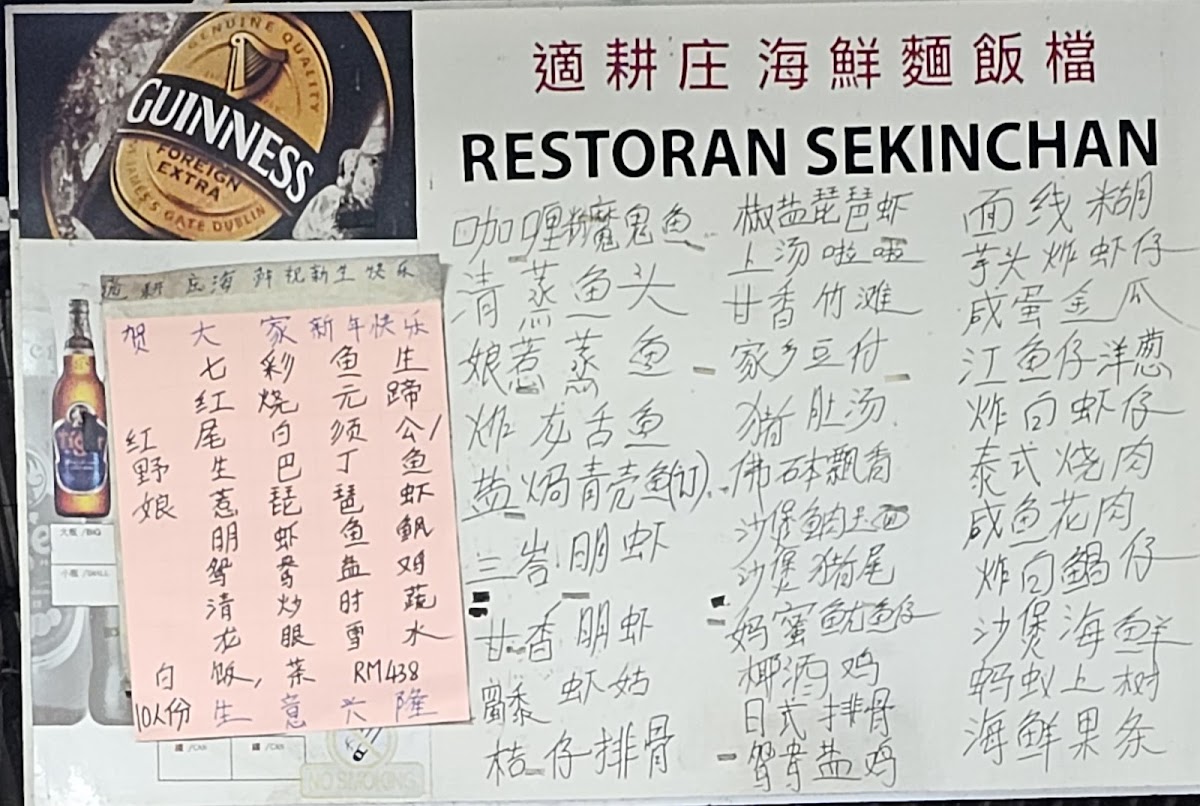 GENUINE QUALITY
GUINNESS
FOREIGN
EXTRA
ST JAMES'S GATE DUBLIN
適耕庄海鮮麵飯檔
RESTORAN SEKINCHAN
適耕庄海鲜祝新年快乐
贺大家新年快乐
七彩鱼生
红烧元蹄
红尾白须公/
野生巴丁鱼
娘惹琵琶虾
明虾鱼鳔
鸳鸯盐鸡
清炒时蔬
龙眼雪水
白饭,茶 RM438
10人份 生意兴隆
Tiger
大瓶/BIG
小瓶/SMALL
罐/CAN
罐/CAN
NO SMOKING
咖喱魔鬼鱼
清蒸鱼头
娘惹蒸鱼
炸龙舌鱼
盐焗青壳鱼(订)
三岩明虾
甘香明虾
虾姑
桔仔排骨
椒盐琵琶虾
上汤啦啦
甘香竹滩
家乡豆付
猪肚汤
佛砵飘香
沙煲
沙煲猪尾
妈蜜鱿鱼仔
椰酒鸡
日式排骨
鸳鸯盐鸡
面线糊
芋头炸虾仔
咸蛋金瓜
江鱼仔洋葱
炸白虾仔
泰式烧肉
咸鱼花肉
炸白鲳仔
沙煲海鲜
蚂蚁上树
海鲜果条